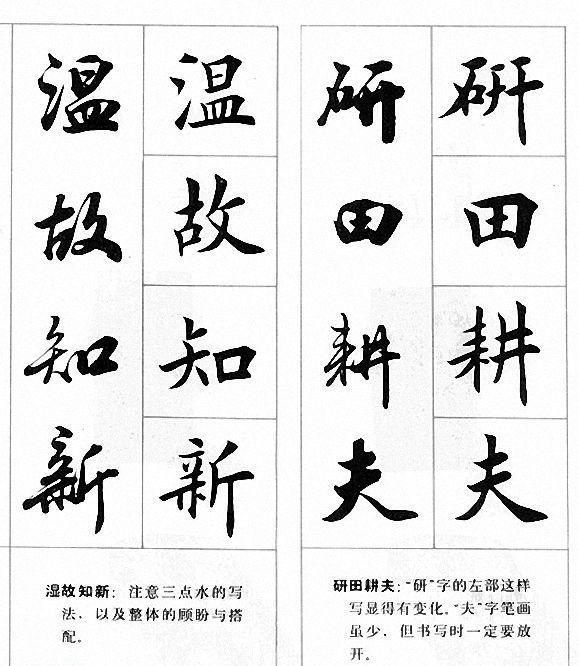 温故知新
温故知新
湿故知新：注意三点水的写
法，以及整体的顾盼与搭
配。
研田耕夫
研田耕夫
研田耕夫：“研”字的左部这样
写显得有变化。“夫”字笔画
虽少，但书写时一定要放
开。